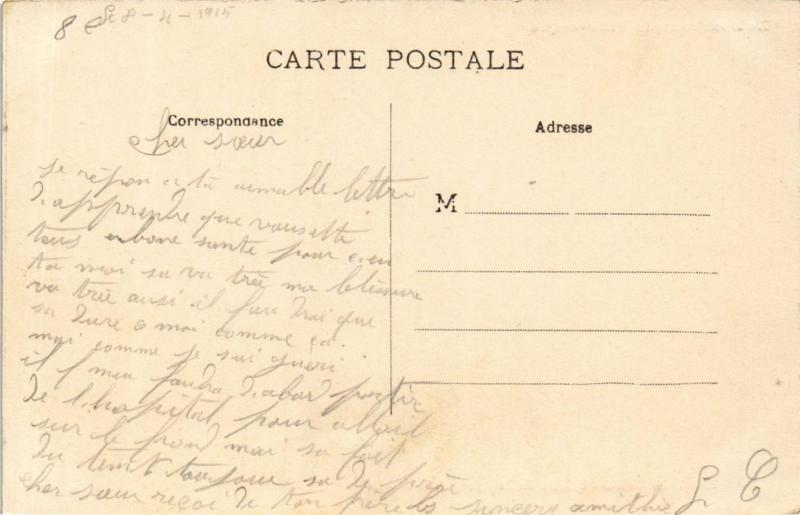 8 Le 8-4-1915
CARTE POSTALE
Correspondance
Adresse
cher sœur
je répon a ta aimable lettre
d apprendre que vousette
tous enbone sante pour
ta moi sa va trée ma blessure
va trée ausi il fau drai que
sa dure o moi comme ça.
moi comme je sui guéri
il meu faudra d abord partir
de l hopital pour allait
sur le frond mai sa fait
du tempt toujour sa de
cher sœur reçoi de ton frère les sincere amithie L C
M